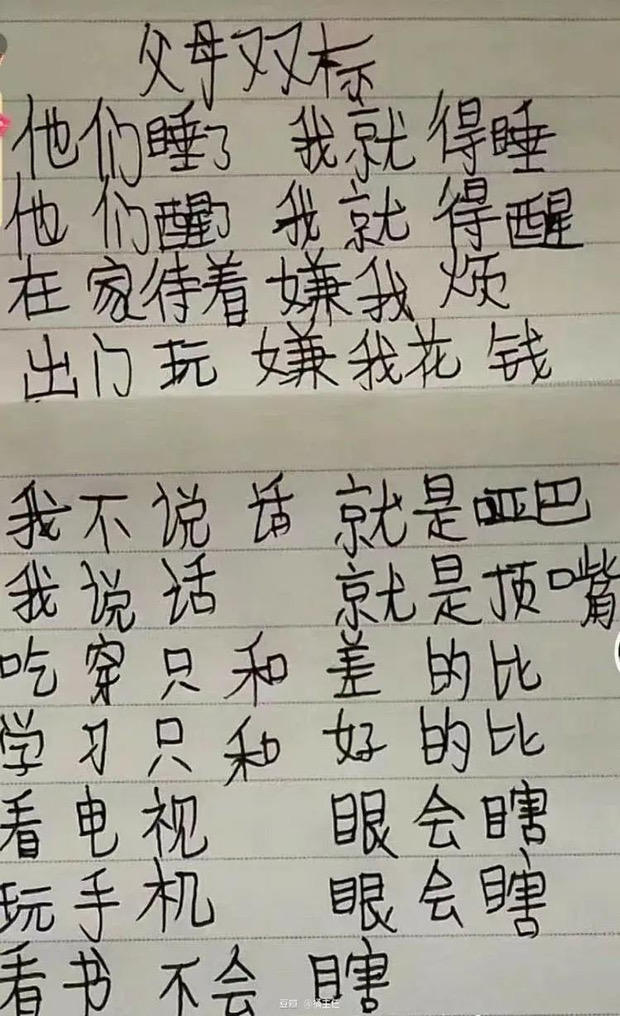 父母双标
他们睡了 我就得睡
他们醒了 我就得醒
在家待着嫌我烦
出门玩 嫌我花钱
我不说话 就是哑巴
我说话 就是顶嘴
吃穿只和差的比
学习只和好的比
看电视 眼会瞎
玩手机 眼会瞎
看书 不会瞎